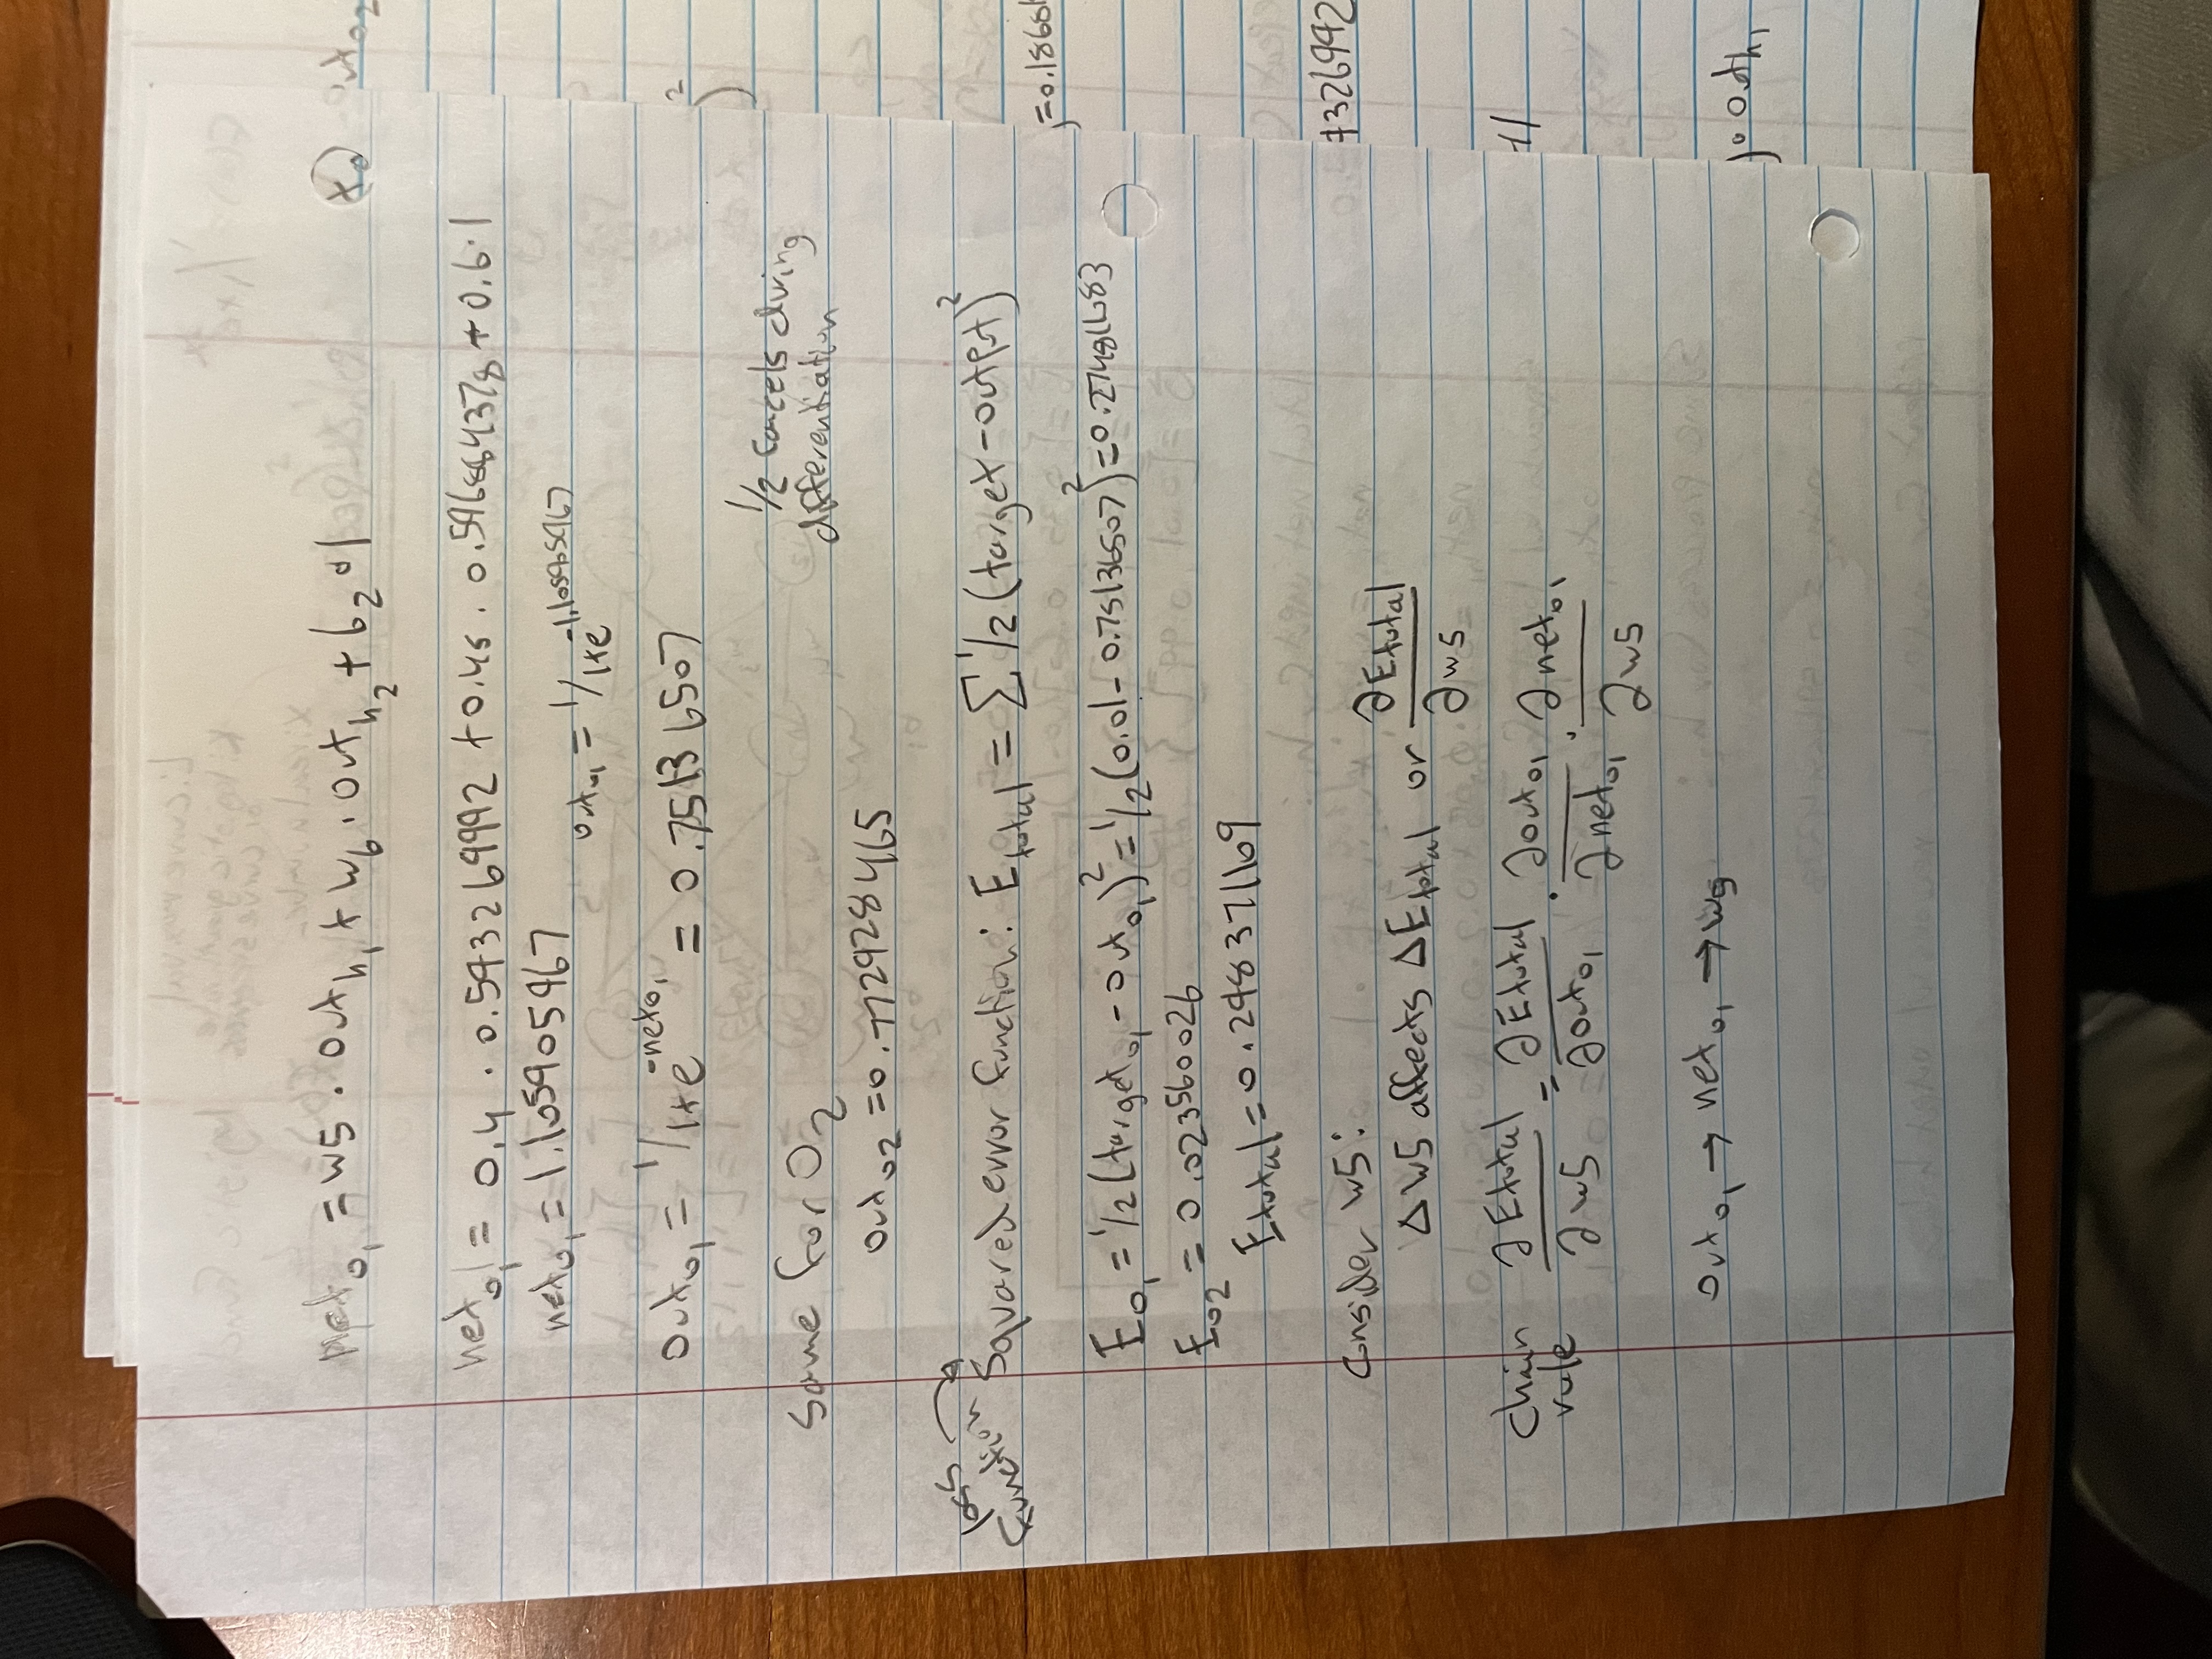 net o₁ = w5 · out h₁ + w₆ · out h₂ + b₂ · 1
net o₁ = 0.4 · 0.593269992 + 0.45 · 0.596884378 + 0.6 · 1
net o₁ = 1.105905967
out o₁ = 1/1+e^-1.105905967
out o₁ = 1/1+e^-net o₁ = 0.75136507
1/2 cancels during
differentiation
Same for O₂
out o2 = 0.772928465
loss
function
Squared error function: E total = Σ 1/2 (target - output)²
E o₁ = 1/2 (target o₁ - out o₁)² = 1/2 (0.01 - 0.75136507)² = 0.274811083
E o2 = 0.023560026
E total = 0.298371109
Consider w5:
Δw5 affects ΔE total or ∂E total / ∂w5
Chain
rule
∂E total / ∂w5 = ∂E total / ∂out o₁ · ∂out o₁ / ∂net o₁ · ∂net o₁ / ∂w5
out o₁ → net o₁ → w5
out o2
)²
=0.1868
326992
) · out h₁